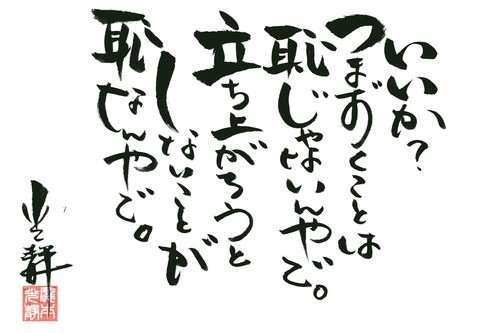 いいか？
つまずくことは
恥じゃないんやで。
立ち上がろうと
しないことが
恥なんやで。